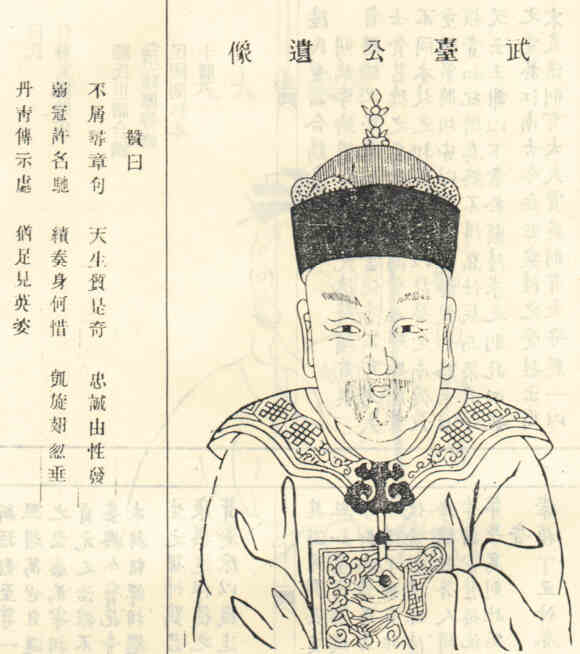 武臺公遺像
贊曰
不屑尋章句 天生質是奇 忠誠由性發
弱冠許名馳 績奏身何惜 凱旋翅忽垂
丹靑傳示處 猶足見英姿